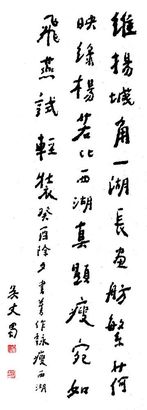 維揚城角一湖長畫舫繁花
映綠楊若比西湖真顯瘦宛如
飛燕試輕裝癸酉除夕書舊作詠瘦西湖
吳丈蜀